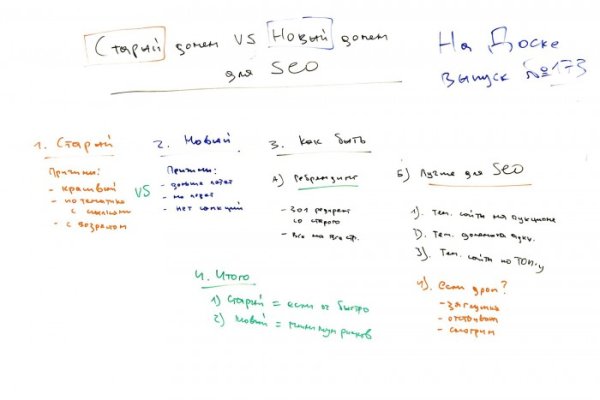 Старый домен VS Новый домен
для SEO
На Доске
выпуск №173
1. Старый
Причины:
- красивый
- по тематике
с ссылками
- с возрастом
VS
2. Новый
Причины:
- дольше
- не
- нет санкций
3. Как быть
А) Ребрендинг
- 301 редирект
со старого
- все на все стр.
Б) Лучше для SEO
1). Тем. сайты на аукционе
2). Тем. домена аукц.
3). Тем. сайты по ТОП-у
4). Если дроп?
- заглушка
- отстаиваем
- смотрим
4. Итого
1) Старый = если ок быстро
2) Новый = минимум рисков